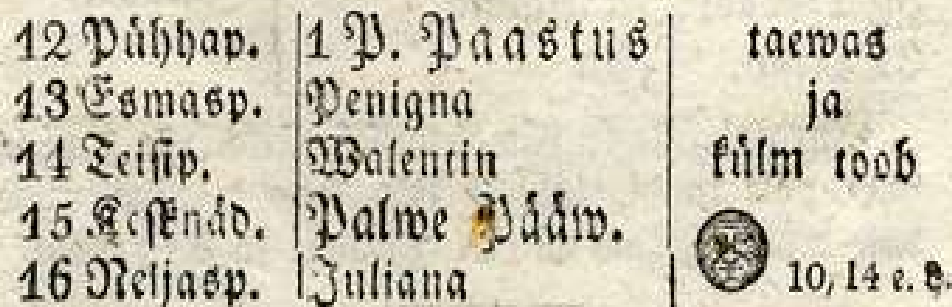 12 Pühhap. 1 P. Paastus taewas
13 Esmasp. Penigna ja
14 Teisip. Walentin külm toob
15 Kesknäd. Palwe Pääw.
16 Neljasp. Juliana 10, 14 e. L.